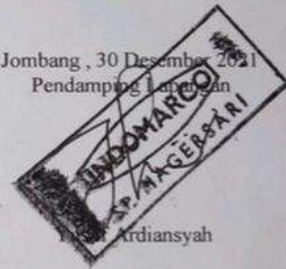 Jombang , 30 Desember 2021
Pendamping Lapangan
INDOMARCO
SP. MAGERSARI
Ardiansyah